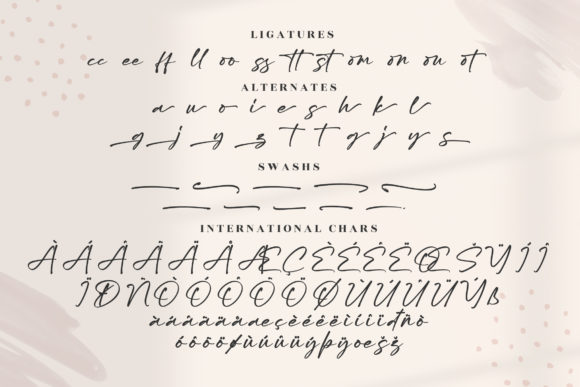 LIGATURES
cc ee ff ll oo ss tt st om on ou ot
ALTERNATES
a u o i e s h k l
g j y z T t g j y s
SWASHS
INTERNATIONAL CHARS
À Á Â Ã Ä Å Æ Ç È É Ê Ë Œ Š Ÿ Í Î
Ï Ð Ñ Ò Ó Ô Õ Ö Ø Ù Ú Û Ü Ý ß
à á â ã ä å æ ç è é ê ë ì í î ï đ ñ ò
ó ô õ ö ø ù ú û ü ý þ ÿ œ š ž